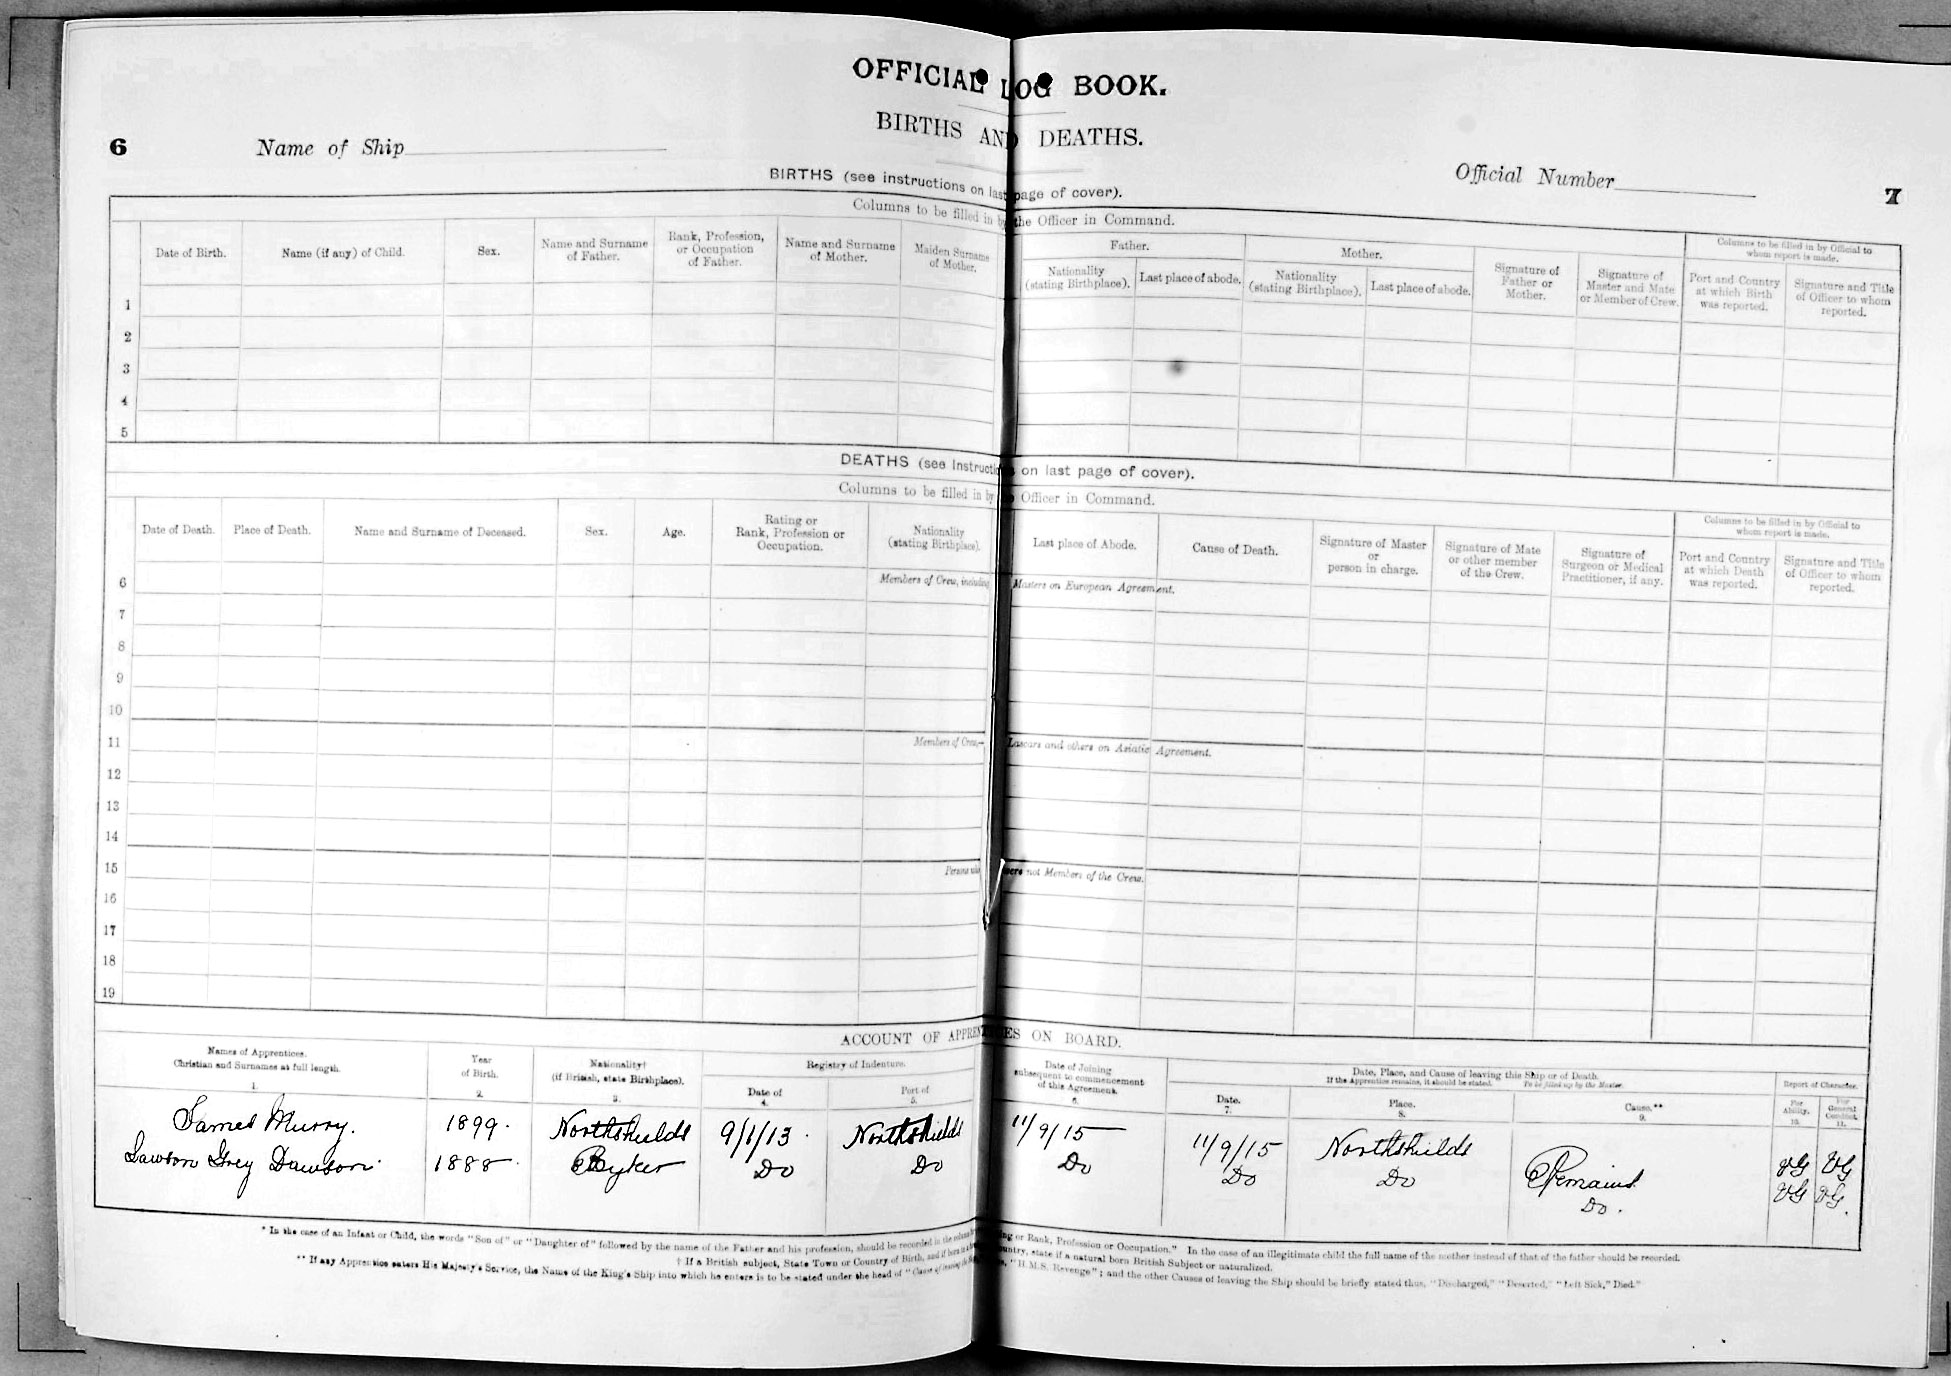 OFFICIAL LOG BOOK.
BIRTHS AND DEATHS.
6 Name of Ship
Official Number 7
BIRTHS (see instructions on last page of cover).
Columns to be filled in by the Officer in Command.
Father. Mother. Columns to be filled in by Official to whom report is made.
Date of Birth. Name (if any) of Child. Sex. Name and Surname of Father. Rank, Profession, or Occupation of Father. Name and Surname of Mother. Maiden Surname of Mother. Nationality (stating Birthplace). Last place of abode. Nationality (stating Birthplace). Last place of abode. Signature of Father or Mother. Signature of Master and Mate or Member of Crew. Port and Country at which Birth was reported. Signature and Title of Officer to whom reported.
1
2
3
4
5
DEATHS (see Instructions on last page of cover).
Columns to be filled in by Officer in Command.
Columns to be filled in by Official to whom report is made.
Date of Death. Place of Death. Name and Surname of Deceased. Sex. Age. Rating or Rank, Profession or Occupation. Nationality (stating Birthplace). Last place of Abode. Cause of Death. Signature of Master or person in charge. Signature of Mate or other member of the Crew. Signature of Surgeon or Medical Practitioner, if any. Port and Country at which Death was reported. Signature and Title of Officer to whom reported.
6 Members of Crew, including Masters on European Agreement.
7
8
9
10
11 Members of Crew,— Lascars and others on Asiatic Agreement.
12
13
14
15 Persons who were not Members of the Crew.
16
17
18
19
ACCOUNT OF APPRENTICES ON BOARD.
Names of Apprentices. Christian and Surnames at full length. 1. Year of Birth. 2. Nationality† (if British, state Birthplace). 3. Registry of Indenture. Date of 4. Port of 5. Date of Joining subsequent to commencement of this Agreement. 6. Date, Place, and Cause of leaving this Ship or of Death. If the Apprentice remains, it should be stated. To be filled up by the Master. Date. 7. Place. 8. Cause.** 9. Report of Character. For Ability. 10. For General Conduct. 11.
James Murry. 1899. Northshields 9/1/13. Northshields 11/9/15 11/9/15 Northshields Remains VG VG
Lawson Grey Dawson. 1888. Byker Do Do Do Do Do Do. VG VG.
* In the case of an Infant or Child, the words "Son of" or "Daughter of" followed by the name of the Father and his profession, should be recorded in the column or Rank, Profession or Occupation." In the case of an illegitimate child the full name of the mother instead of that of the father should be recorded.
† If a British subject, State Town or Country of Birth, and if born in a country, state if a natural born British Subject or naturalized.
** If any Apprentice enters His Majesty's Service, the Name of the King's Ship into which he enters is to be stated under the head of "Cause of leaving the "H.M.S. Revenge"; and the other Causes of leaving the Ship should be briefly stated thus, "Discharged," "Deserted," "Left Sick," Died."